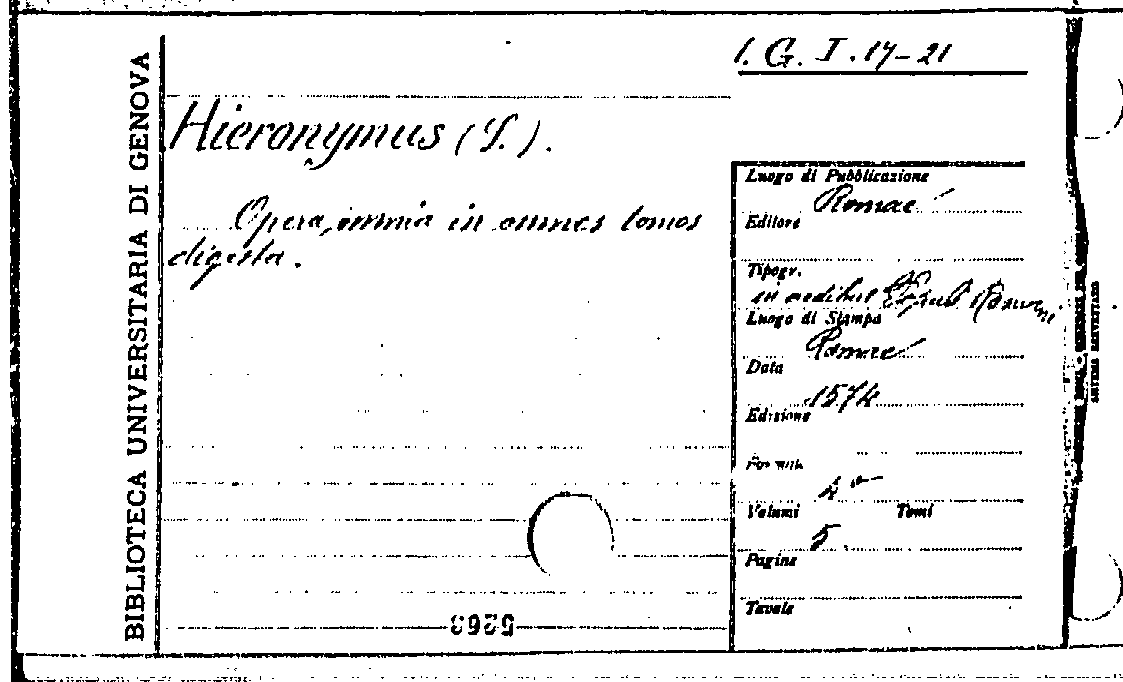 1. G. I. 17-21
BIBLIOTECA UNIVERSITARIA DI GENOVA
Hieronymus (S.).
Opera omnia in omnes tomos
digesta.
Luogo di Pubblicazione
Romae
Editore
Tipogr.
in aedibus Populi Romani
Luogo di Stampa
Romae
Data
1574
Edizione
Formato
4°
Volumi Tomi
5.
Pagine
Tavole
5263